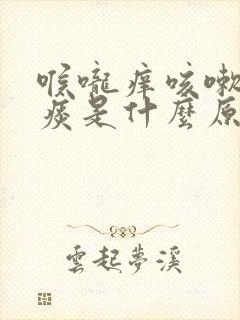 喉嚨痒咳嗽
痰是什麼原
雲起夢溪